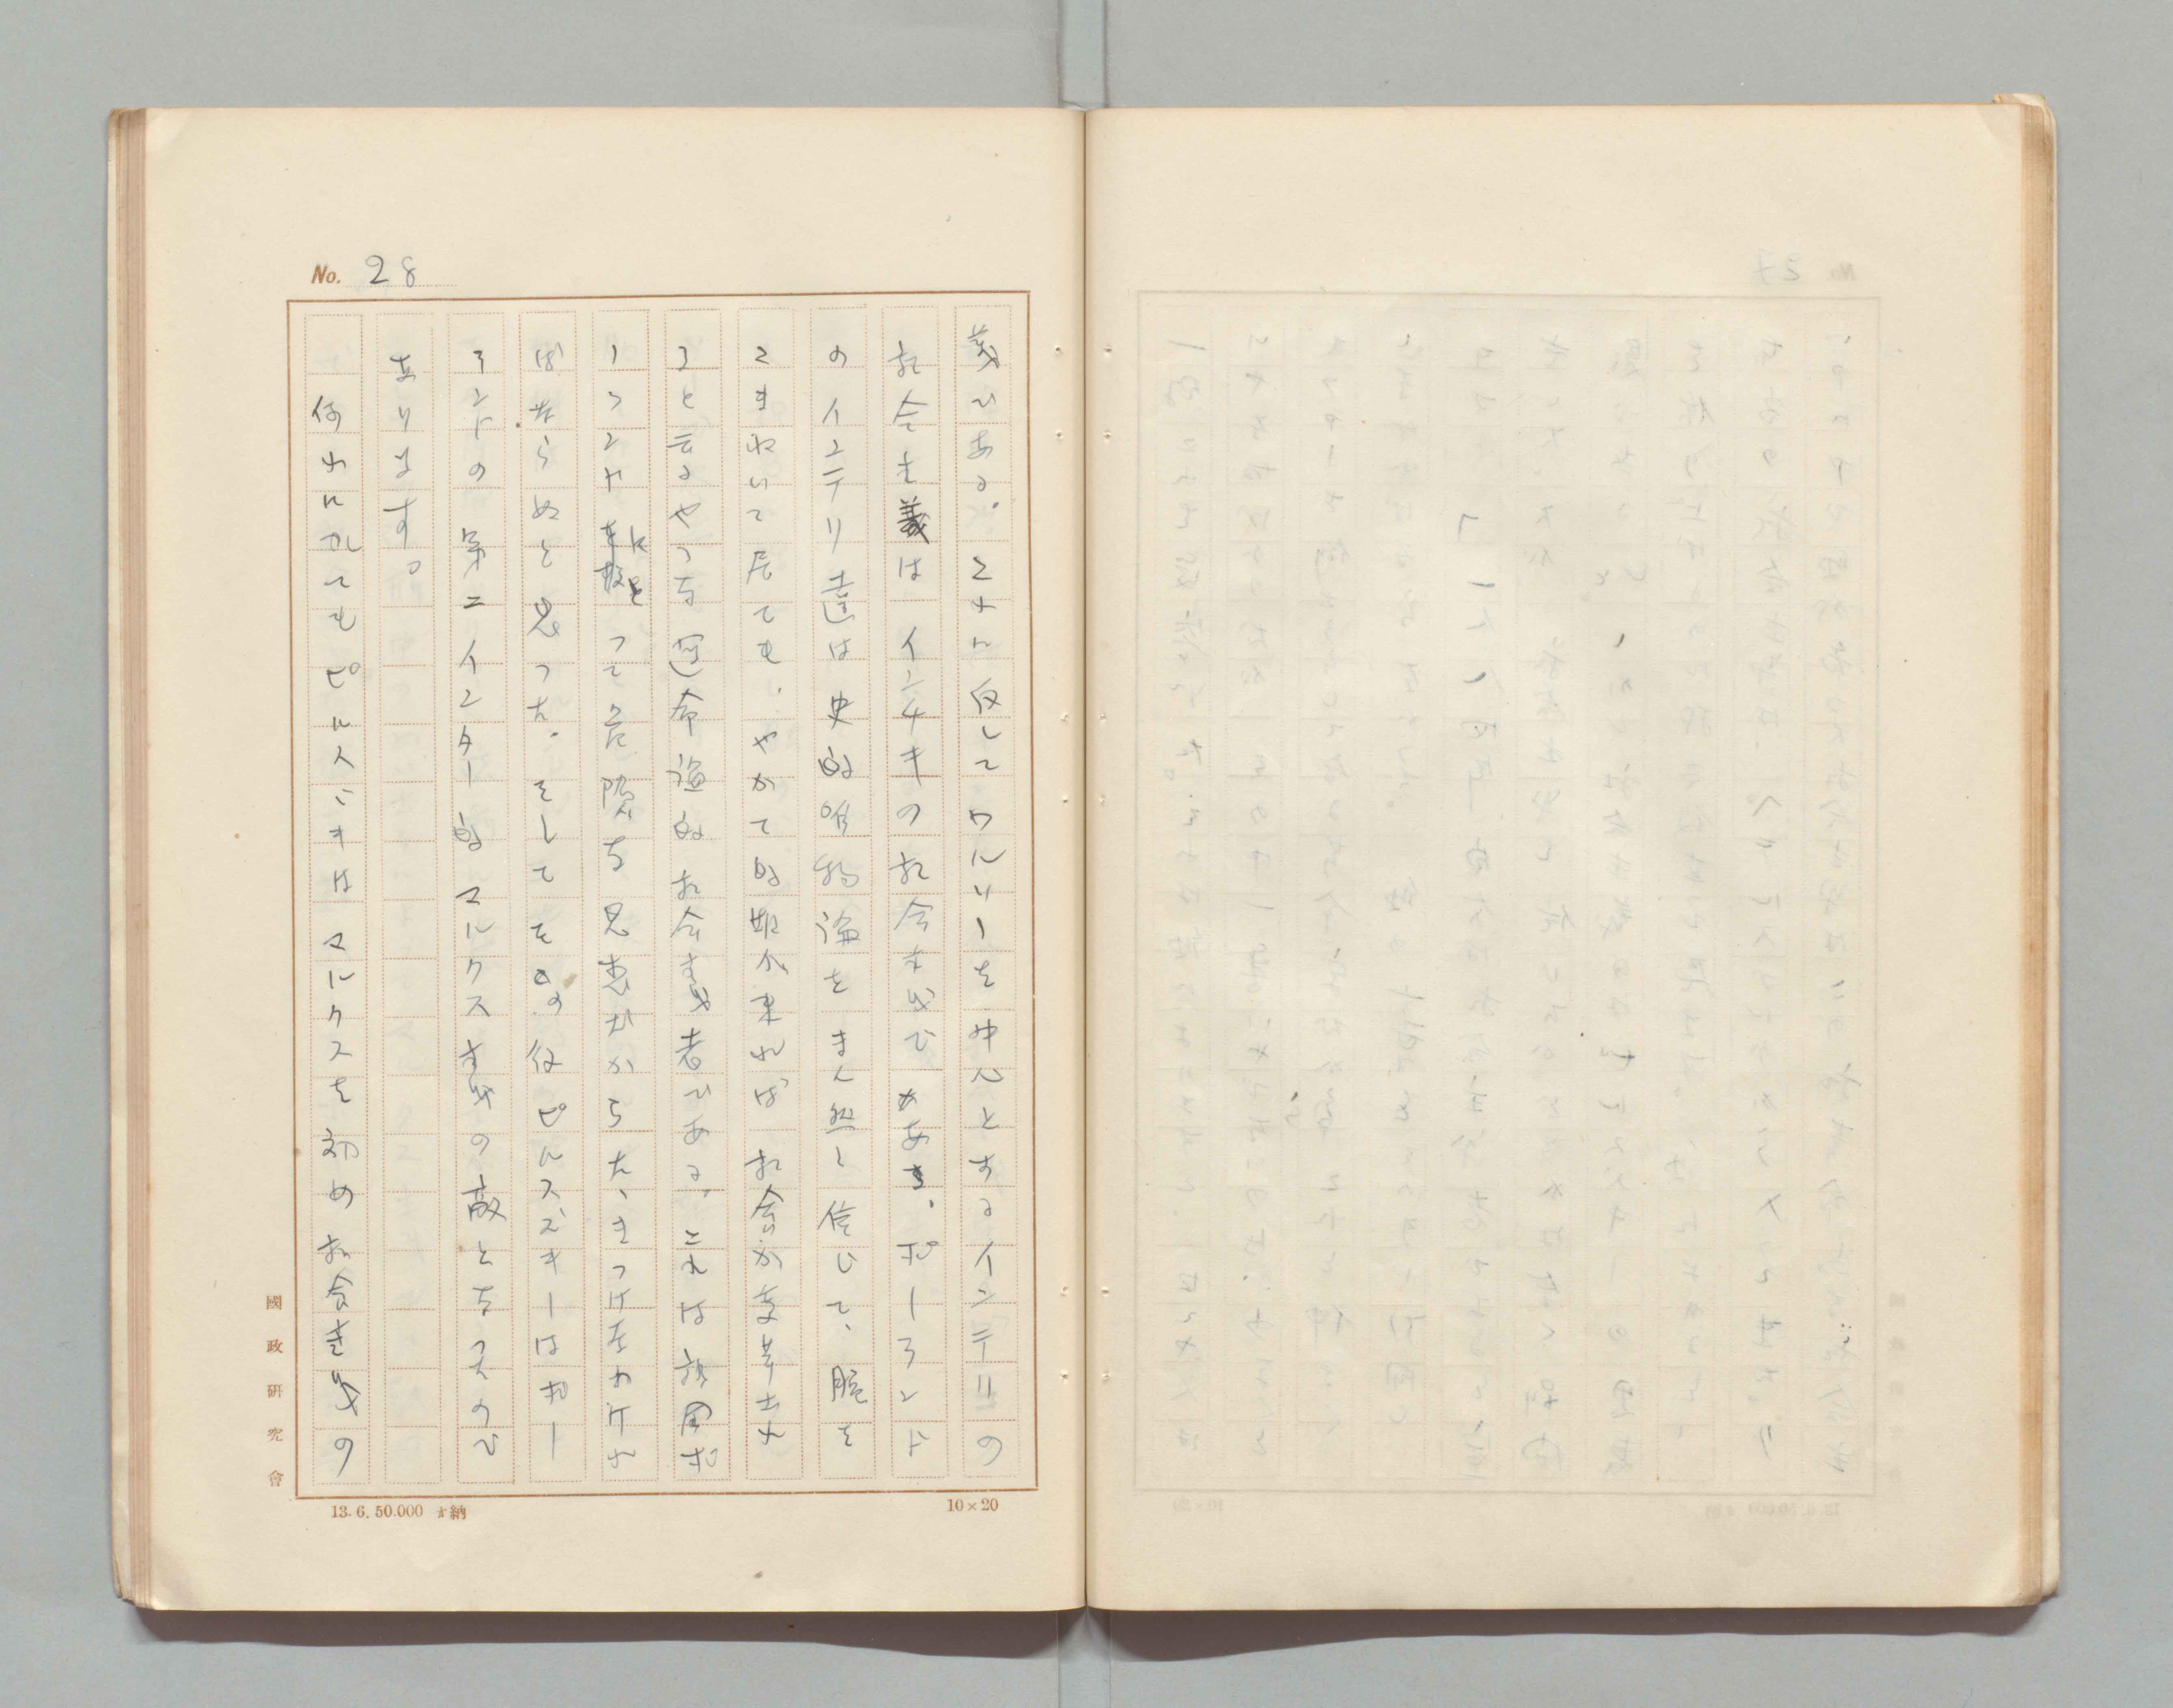 No. 28
義である。これに反してワルソーを中心とするインテリの
社会主義はインチキの社会主義であ る。ポーランド
のインテリ達は史的唯物論をまん然と信じて、腕を
こまねいて居ても、やがて時期が来れば社会が変革され
ると云ふやうな運命論的社会主義者である。これは祖国ポ
ーランドにとって危険な思想だからたゝきつけなければ
ばならぬと思った。そしてその後ピルスズキーはポー
ランドの第二インター的マルクス主義の敵となったので
あります。
何れにしてもピルスズキはマルクスを初め社会主義の
國政研究會
13. 6. 50.000 納
10×20